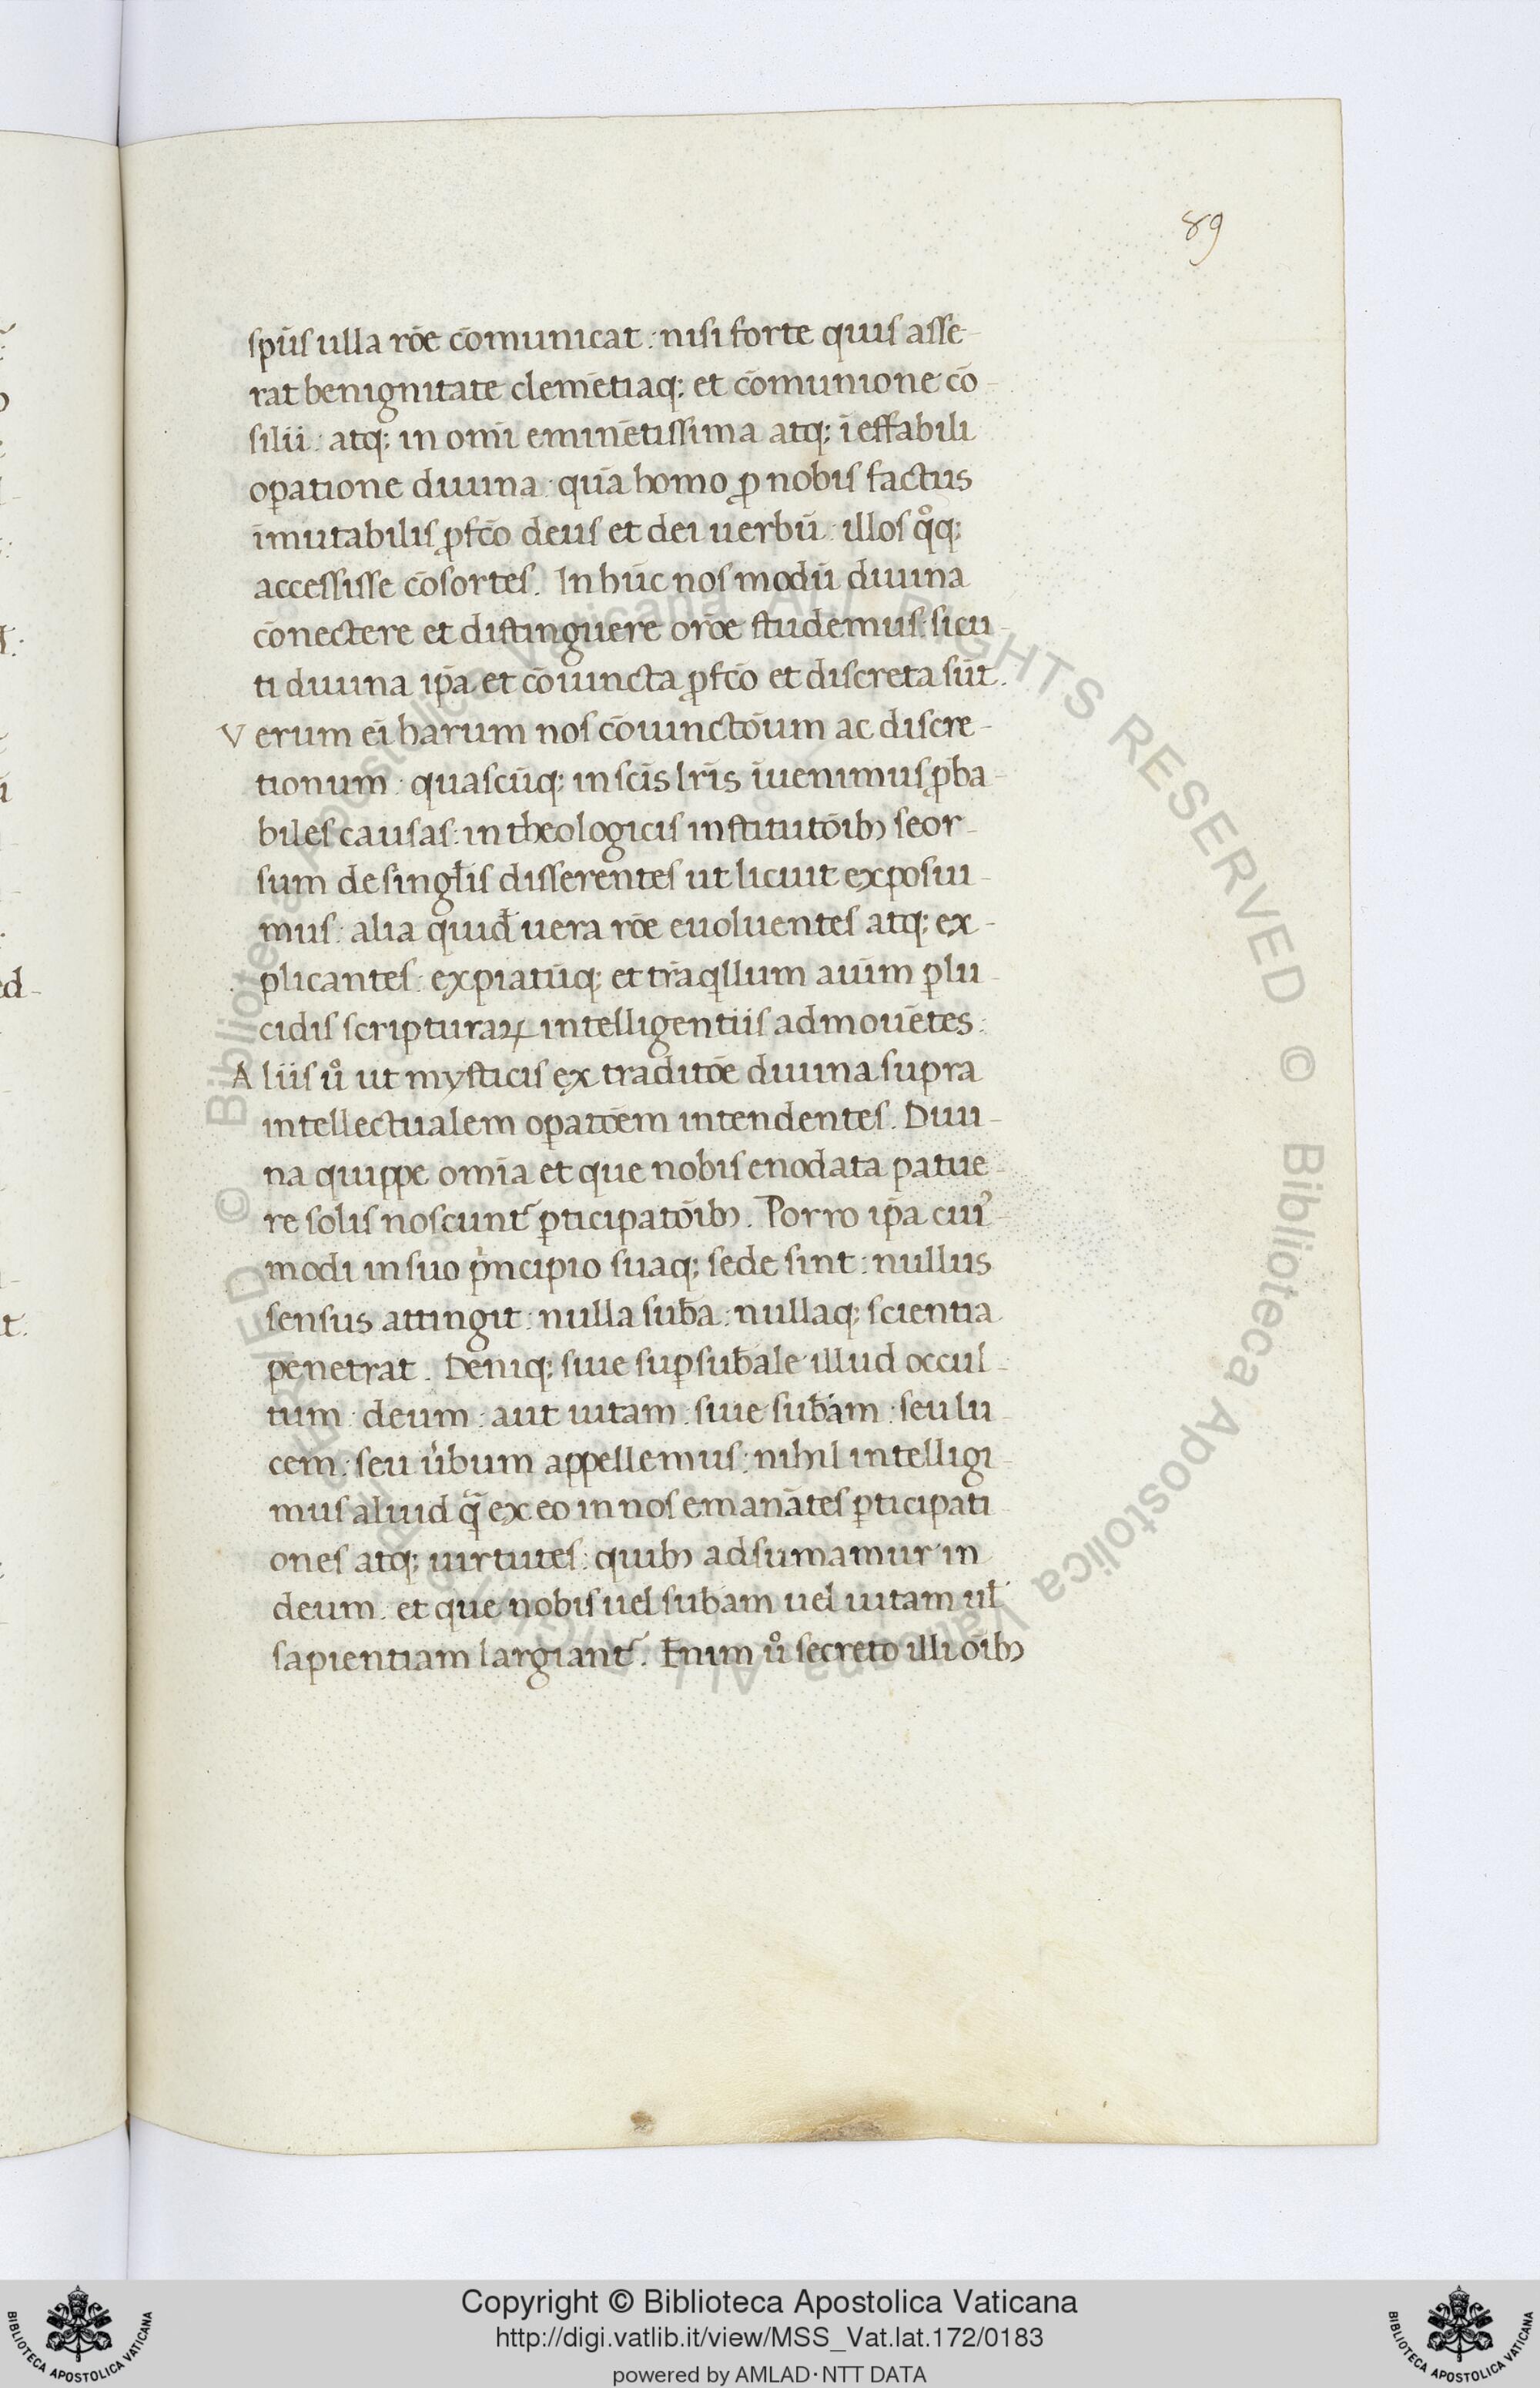 89
sp̄us ulla rōe cōmunicat : nisi forte quis asse-
rat benignitate clemētiaq; et cōmunione cō-
silii : atq; in om̄i eminētissima atq; īeffabili
oꝑatione diuina : quā homo ꝓ nobis factus
īmutabilis ꝓfc̄o deus et dei uerbū : illos qͦq;
accessisse cōsortes. In hūc nos modū diuina
cōnectere et distinguere or̄oe studemus : sicu-
ti diuina ip̄a et cōiuncta ꝓfc̄o et discreta sūt.
Verum ēi harum nos cōiunctōum ac discre-
tionum : quascūq; in sc̄is lr̄is īuenimus ꝓba-
biles causas : in theologicis institutōibꝫ seor-
sum de singłis disserentes ut licuit exposui-
mus : alia quid̄ uera rōe euoluentes atq; ex-
plicantes : expiatūq; et trāqllum aīum ꝑlu-
cidis scripturaꝝ intelligentiis admouētes :
Aliis uͦ ut mysticis ex traditōe diuina supra
intellectualem oꝑatōem intendentes. Diui-
na quippe om̄ia et que nobis enodata patue-
re solis noscunt᷑ ꝑticipatōibꝫ. Porro ip̄a cuiꝰ-
modi in suo pⁱncipio suaq; sede sint : nullus
sensus attingit : nulla sub̄a : nullaq; scientia
penetrat. Deniq; siue suꝑsub̄ale illud occul-
tum : deum : aut uitam : siue sub̄am : seu lu-
cem : seu u̓bum appellemus : nihil intelligi-
mus aliud q̄ ex eo in nos emanātes ꝑticipati-
ones atq; uirtutes : quibꝫ adsumamur in
deum : et que nobis uel sub̄am uel uitam uł
sapientiam largiant᷑. Enim uͦ secreto illi ōibꝫ
© Biblioteca Apostolica Vaticana ALL RIGHTS RESERVED © Biblioteca Apostolica Vaticana ALL RIGHTS RESERVED
BIBLIOTECA APOSTOLICA VATICANA
Copyright © Biblioteca Apostolica Vaticana
http://digi.vatlib.it/view/MSS_Vat.lat.172/0183
powered by AMLAD·NTT DATA
BIBLIOTECA APOSTOLICA VATICANA